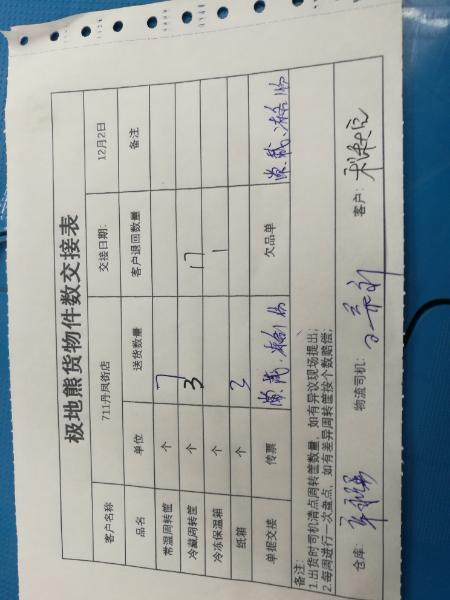 极地熊货物件数交接表
客户名称 711丹凤街店 交接日期: 12月2日
品名 单位 送货数量 客户退回数量 备注
常温周转筐 个 7
冷藏周转筐 个 3 17
冷冻保温箱 个 1
纸箱 个 3
单据交接 传票 欠品单
备注:
1.出货时司机清点周转筐数量,如有异议现场提出;
2.每周进行一次盘点,如有差异周转筐按个数赔偿;
仓库: 物流司机: 客户: